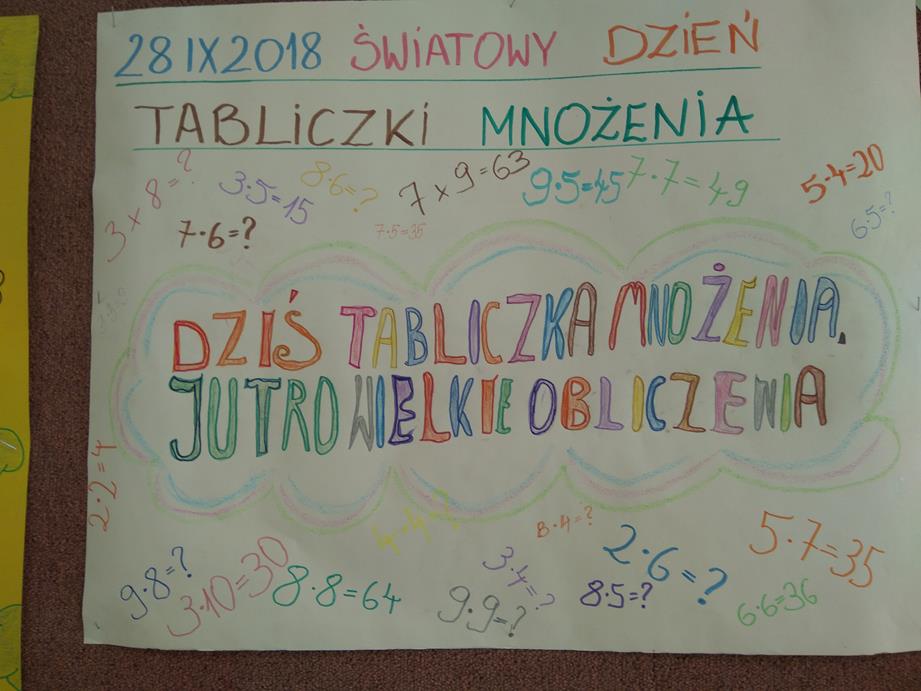 28 IX 2018 ŚWIATOWY DZIEŃ
TABLICZKI MNOŻENIA
3 x 8 = ?
3·5=15
8·6=?
7 x 9=63
9·5=45
7·7=49
5·4=20
7·6=?
7·5=35
6·5=?
DZIŚ TABLICZKA MNOŻENIA.
JUTRO WIELKIE OBLICZENIA
2·2=4
4·4=?
8·4=?
9·8=?
3·10=30
8·8=64
3·4=?
9·9=?
8·5=?
2·6=?
5·7=35
6·6=36